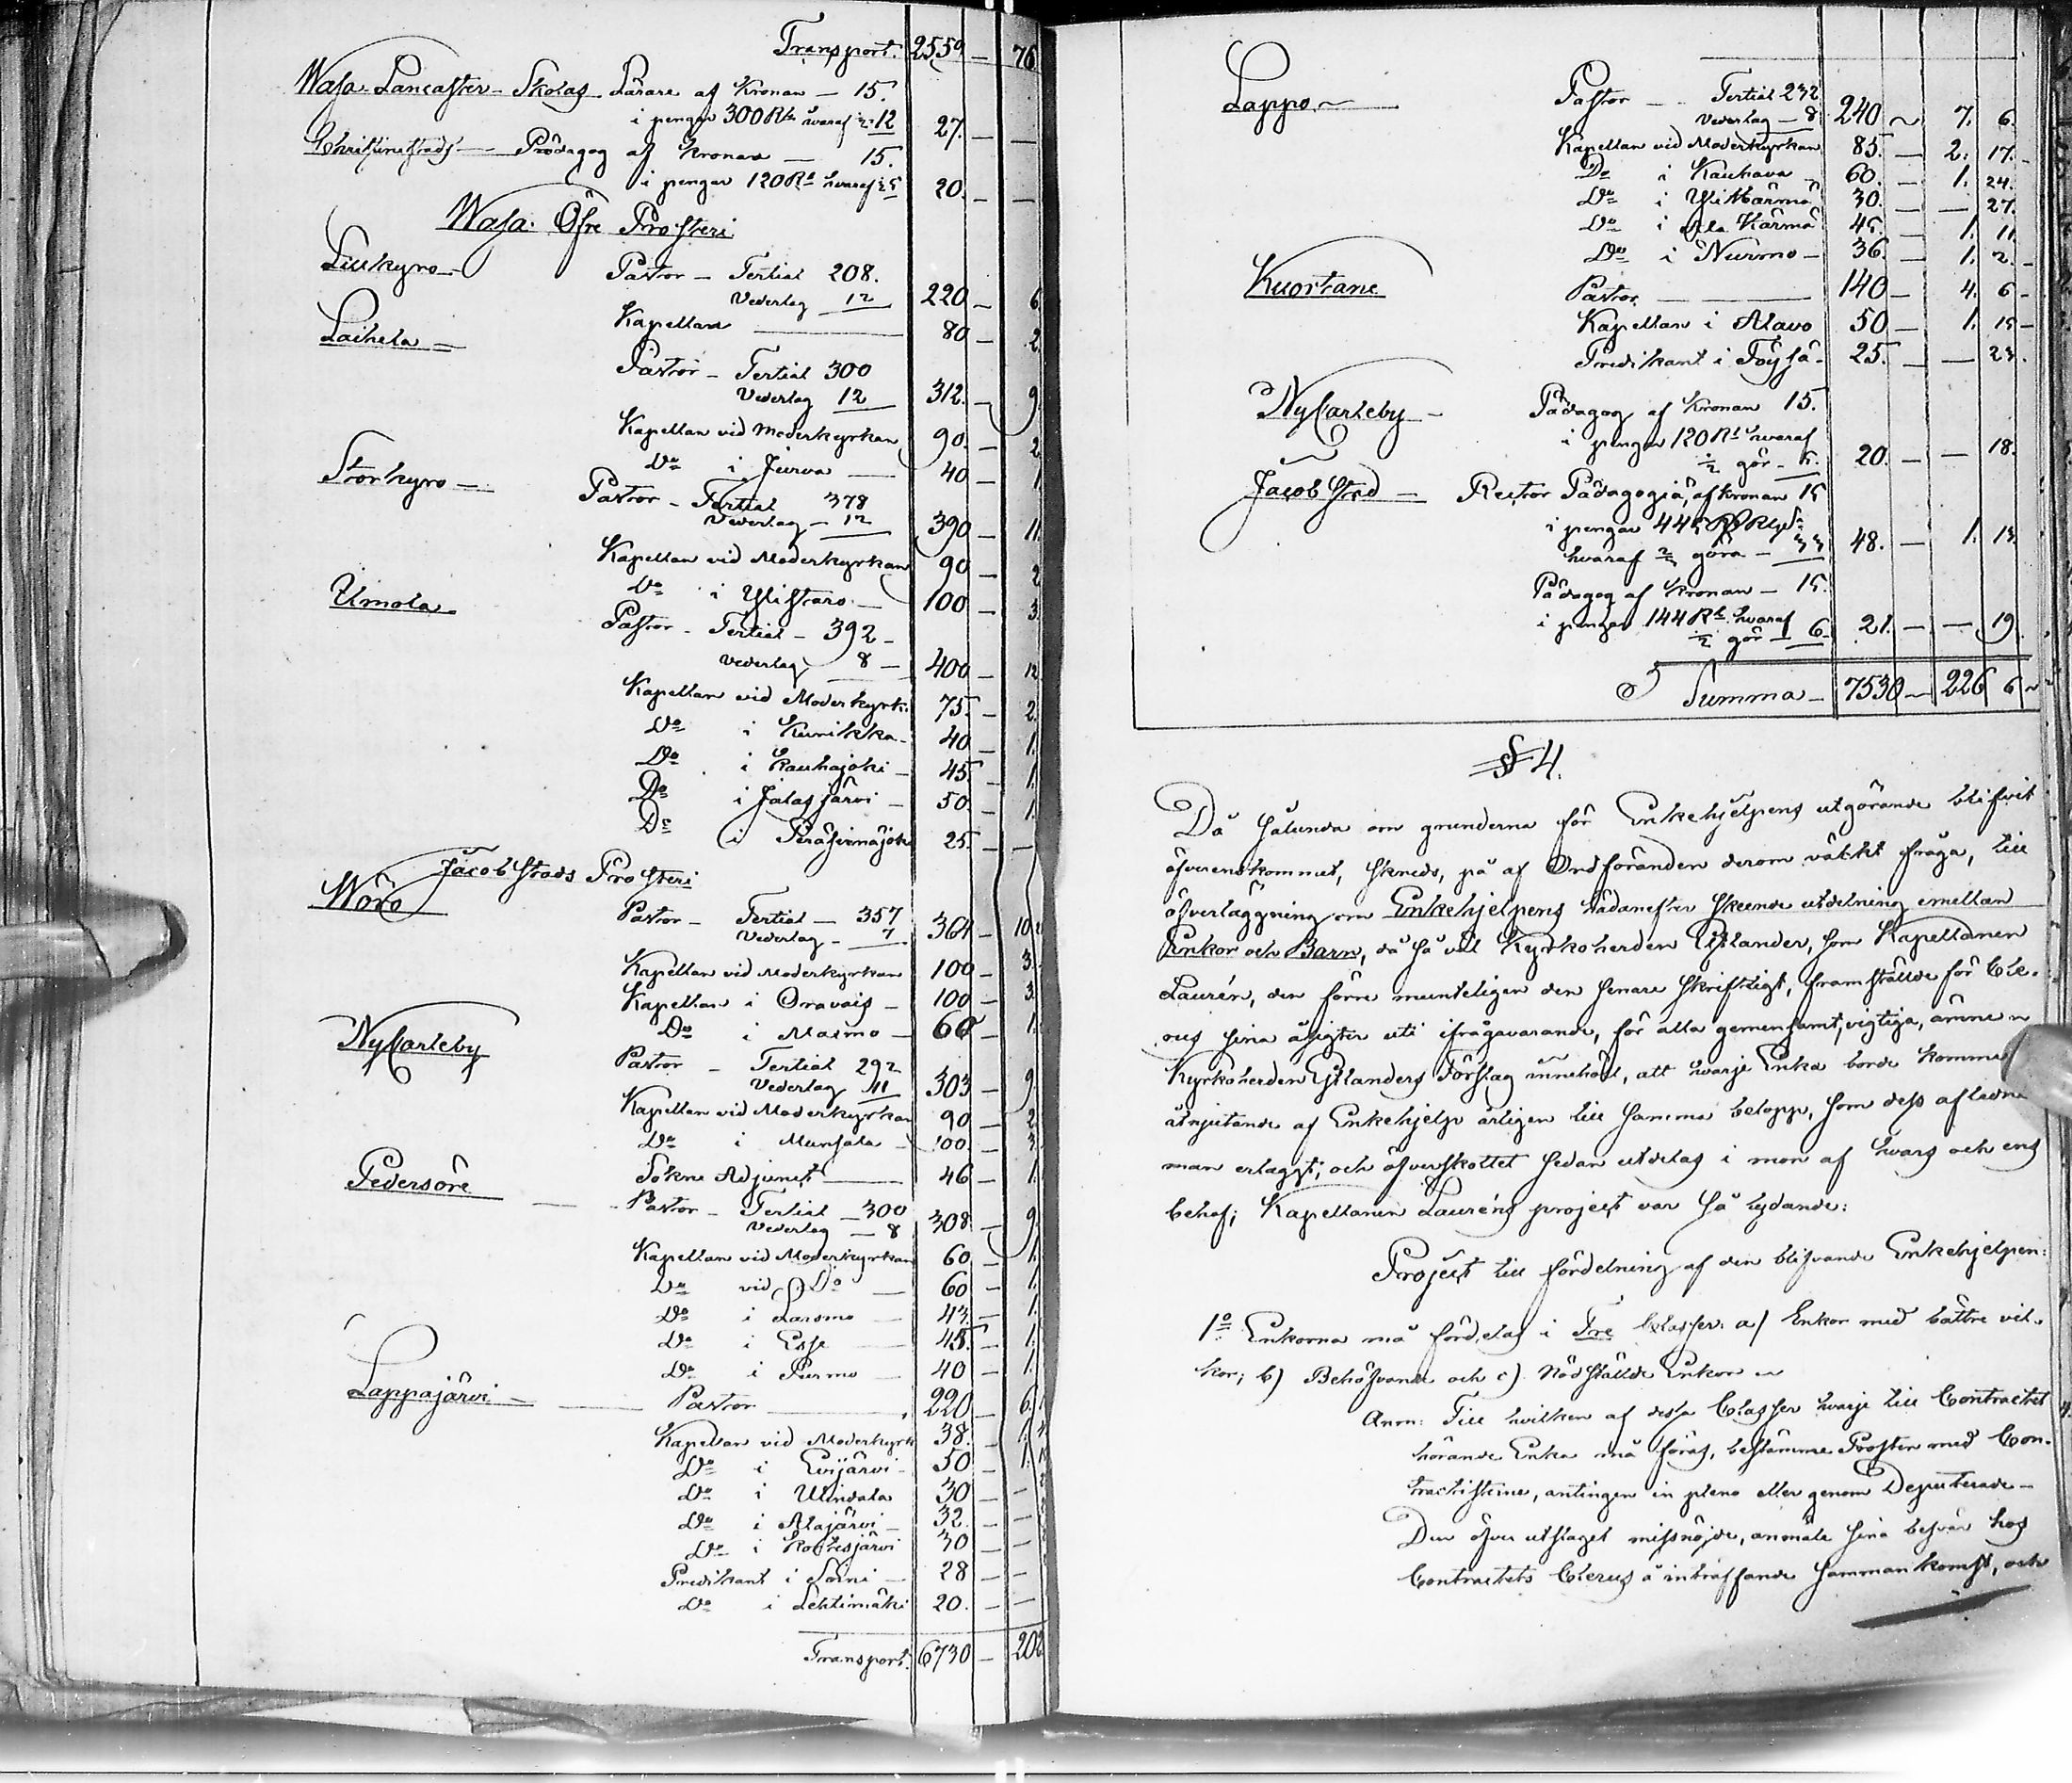 Transport. 2559 — 76
Wasa Lancaster-Skolas Lärare af Kronan — 15.
i pengar 300 Rb hvaraf ½ 12 27. — —
Christinestads — Pädagog af kronan — 15.
i pengar 120 Rb hvaraf ½ 5 20. — —
Wasa Öfre Prosteri
Lillkyro — Pastor — Tertial 208.
Vederlag 12 220 — 6
Kapellan — 80 — 2
Laihela — Pastor — Tertial 300
Vederlag 12 312. — 9
Kapellan vid Moderkyrkan 90. — 2
Do i Jurva — 40 — 1
Storkyro — Pastor — Tertial 378
Vederlag — 12 390 — 11.
Kapellan vid Moderkyrkan 90 — 2
Do i Ylistaro — 100 — 3.
Ilmola — Pastor — Tertial — 392 —
Vederlag 8 — 400 — 12
Kapellan vid Moderkyrk. 75. — 2.
Do i Kurikka — 40 — 1.
Do i Kauhajoki — 45. — 1.
Do i Jalasjärvi — 50. — 1.
Do i Peräseinäjoki 25. — —
Jacobstads Prosteri
Wörå Pastor — Tertial — 357
Vederlag — 7 364 — 10.
Kapellan vid Moderkyrkan 100 — 3.
Kapellan i Oravais — 100 — 3.
Do i Maxmo — 60 — 1.
NyCarleby Pastor — Tertial 292
Vederlag 11 303 — 9
Kapellan vid Moderkyrkan 90 — 2
Do i Munsala — 100. — 3
Sokne Adjunct — 46 — 1.
Pedersöre — Pastor — Tertial — 300
Vederlag — 8 308 — 9.
Kapellan vid Moderkyrkan 60 — 1.
Do vid Do — 60 — 1.
Do i Larsmo — 43. — 1.
Do i Esse — 45. — 1.
Do i Purmo — 40 — 1.
Lappajärvi — Pastor — 220 — 6.
Kapellan vid Moderkyrk 38. — 1.
Do i Evijärvi — 50 — 1.
Do i Windala 30 — —
Do i Alajärvi — 32. — —
Do i Kortesjärvi 30 — —
Predikant i Soini — 28 — —
Do i Lehtimäki 20. — —
Transport. 6730 — 202
Lappo — Pastor — Tertial 232
Vederlag — 8 240 ~ 7. 6.
Kapellan vid Moderkyrkan 85. — 2. 17. —
Do i Kauhava — 60. — 1. 24.
Do i Yli Härmä 30. — — 27.
Do i Ala Härmä 45. — 1. 11.
Do i Nurmo — 36. — 1. 2. —
Kuortane Pastor — 140 — 4. 6 —
Kapellan i Alavo 50 — 1. 15 —
Predikant i Töysä — 25. — — 23.
NyCarleby — Pädagog af Kronan 15.
i pengar 120 Rb hvaraf
½ gör — 5. 20. — — 18.
Jacobstad — Rector Pädagogiä, af kronan 15
i pengar 445
hvaraf göra — 33 48. — 1. 13.
Pädagog af Kronan — 15.
i pengar 144 Rb hvaraf
½ gör — 6 — 21. — — 19.
Summa — 7530 — 226 6 ~
§ 4.
Då sålunda om grunderna för Enkehjelpens utgörande blifvit
öfverenskommet, skreds, på af Ordföranden derom väckt fråga, till
öfverläggning om Enkehjelpens hädanefter skeende utdelning emellan
Enkor och Barn, då så väl Kyrkoherden Estlander, som Kapellanen
Laurén, den förre munteligen den senare skriftligt, framställde för Cle-
rus sina åsigter uti ifrågavarande, för alla gemensamt, vigtiga, ämne —
Kyrkoherden Estlanders Förslag innehöll, att hvarje Enka borde komma i
åtnjutande af Enkehjelp årligen till samma belopp, som dess aflidne
man erlaggt; och öfverskottet sedan utdelas i mon af hvars och ens
behof; Kapellanen Lauréns project var så lydande:
Project till fördelning af den blifvande Enkehjelpen:
1o Enkorna må fördelas i Tre Classer: a) Enkor med bättre vil-
kor; b) Behöfvande och c) Nödställde Enkor —
Anm: Till hvilken af dessa Classer hvarje till Contractet
hörande Enka må föras, bestämme Prosten med Con-
tractisterne, antingen in pleno eller genom Deputerade —
Den öfver utslaget missnöjde, anmäle sina besvär hos
Contractets Clerus å inträffande sammankomst, och